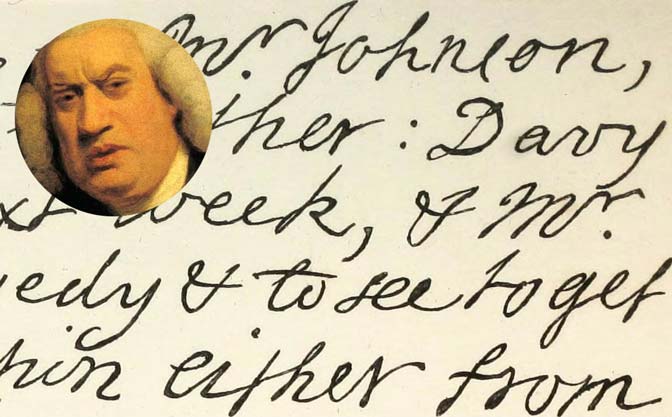 Mr Johnson,
ther : Davy
xt week, & Mr.
edy & to see to get
either from